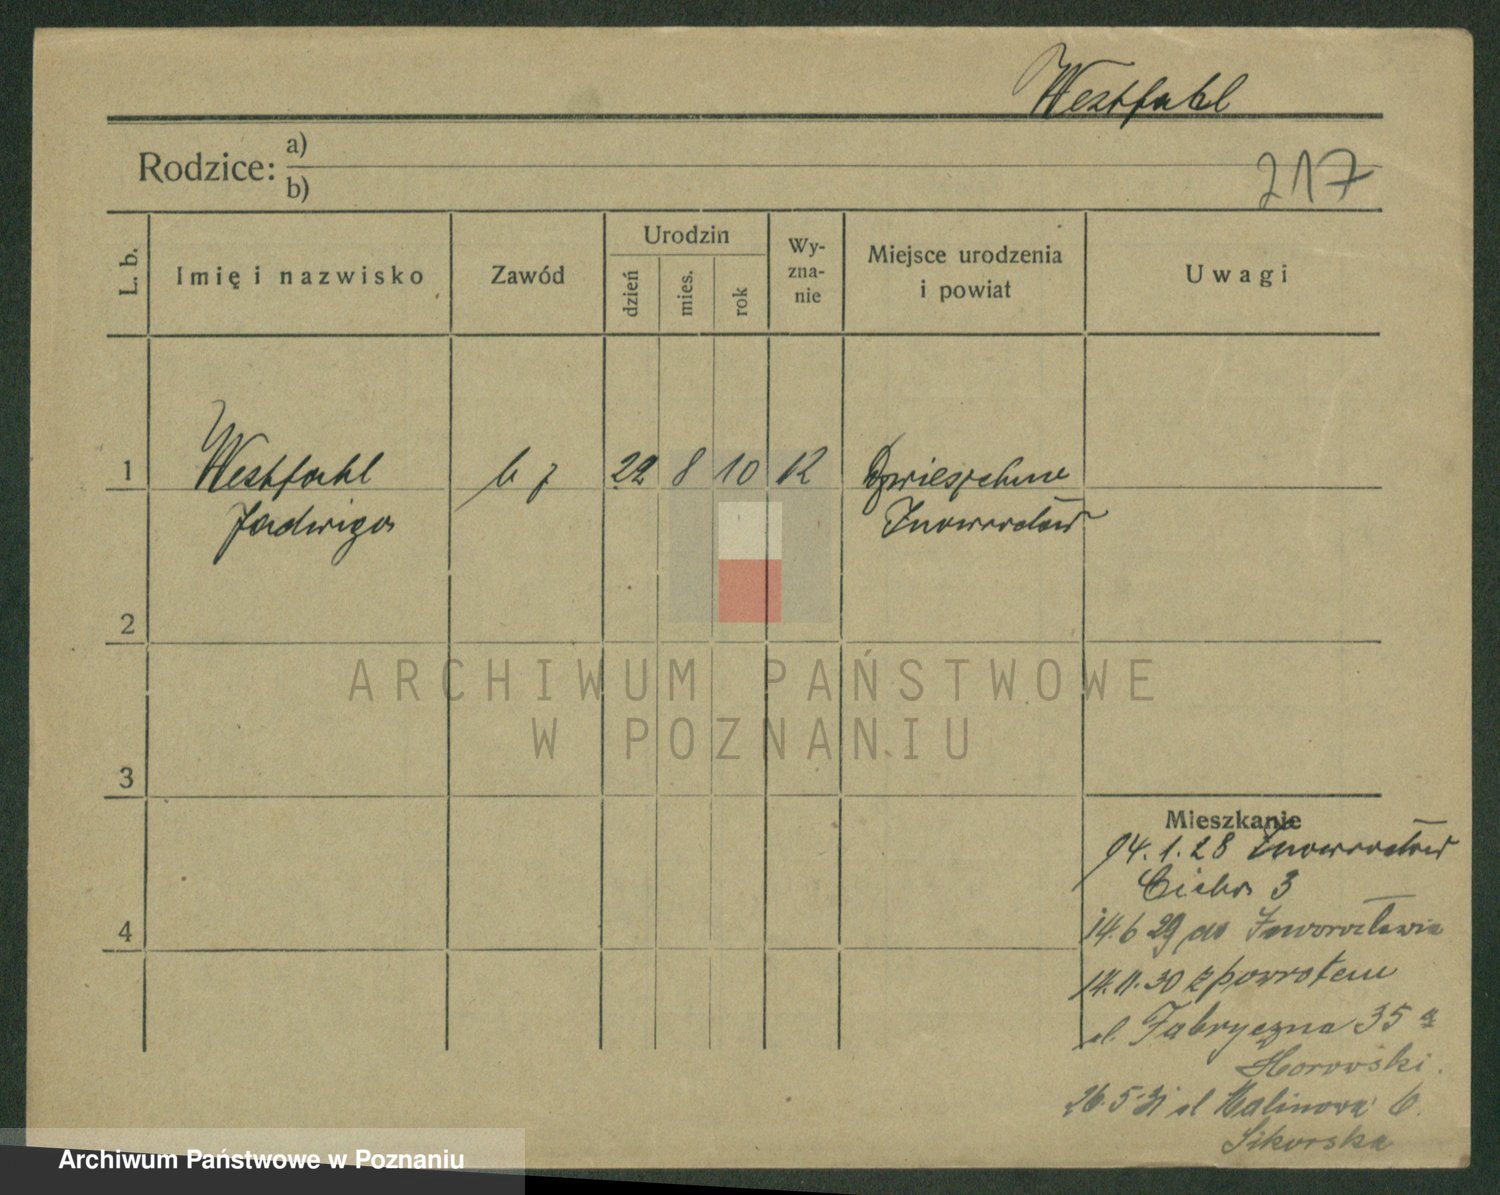 Westfahl
Rodzice: a)
b)
217
L. b.
Imię i nazwisko
Zawód
Urodzin
dzień
mies.
rok
Wy-
zna-
nie
Miejsce urodzenia
i powiat
Uwagi
1
Westfahl
Jadwiga
22 8 10
Inowrocław
2
3
4
ARCHIWUM PAŃSTWOWE
W POZNANIU
Mieszkanie
14.1.28 Inowrocław
Cicha 3
14.6 29 do Inowrocławia
14.11.30 z powrotem
ul. Fabryczna 35 a
26.5.31 ul Malinowa 6.
Sikorska
Archiwum Państwowe w Poznaniu